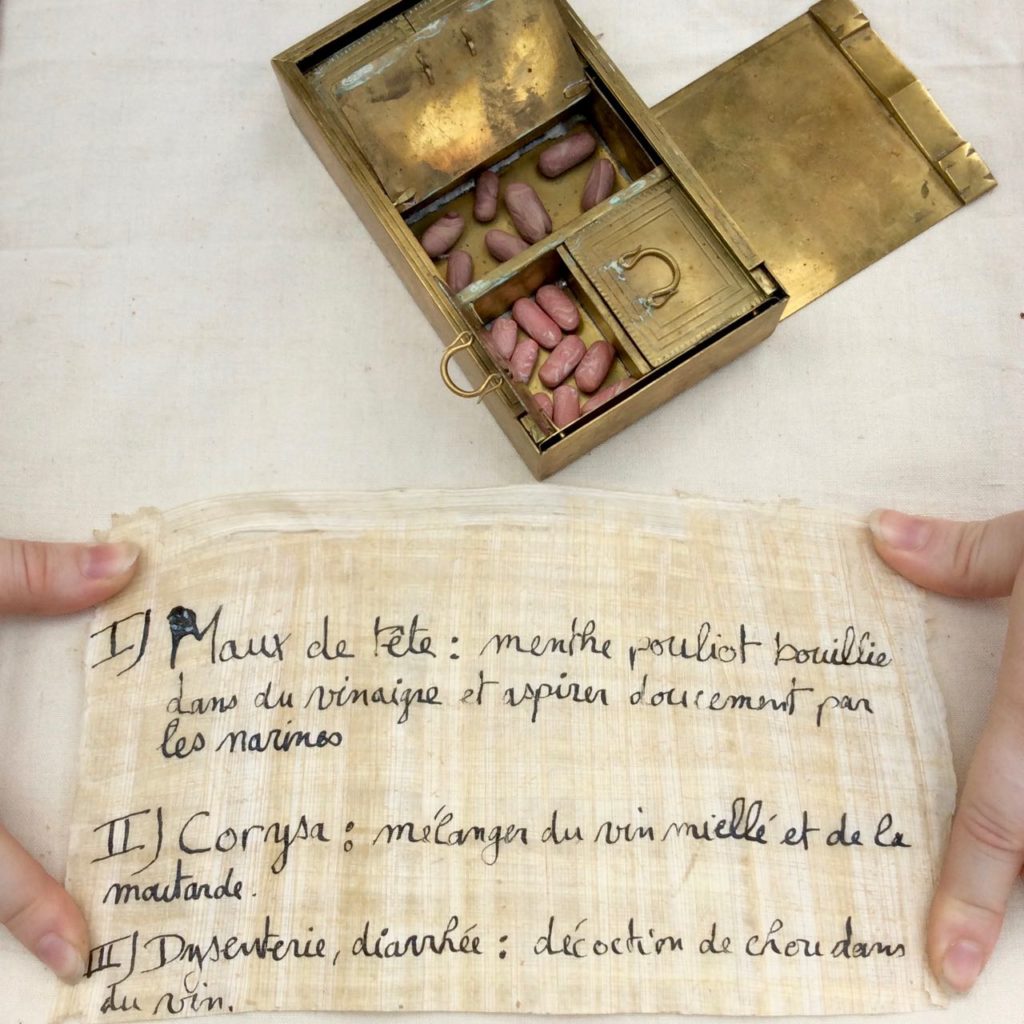 I) Maux de tête : menthe pouliot bouillie
dans du vinaigre et aspirer doucement par
les narines
II) Corysa : mélanger du vin miellé et de la
moutarde.
III) Dysenterie, diarrhée : décoction de chou dans
du vin.